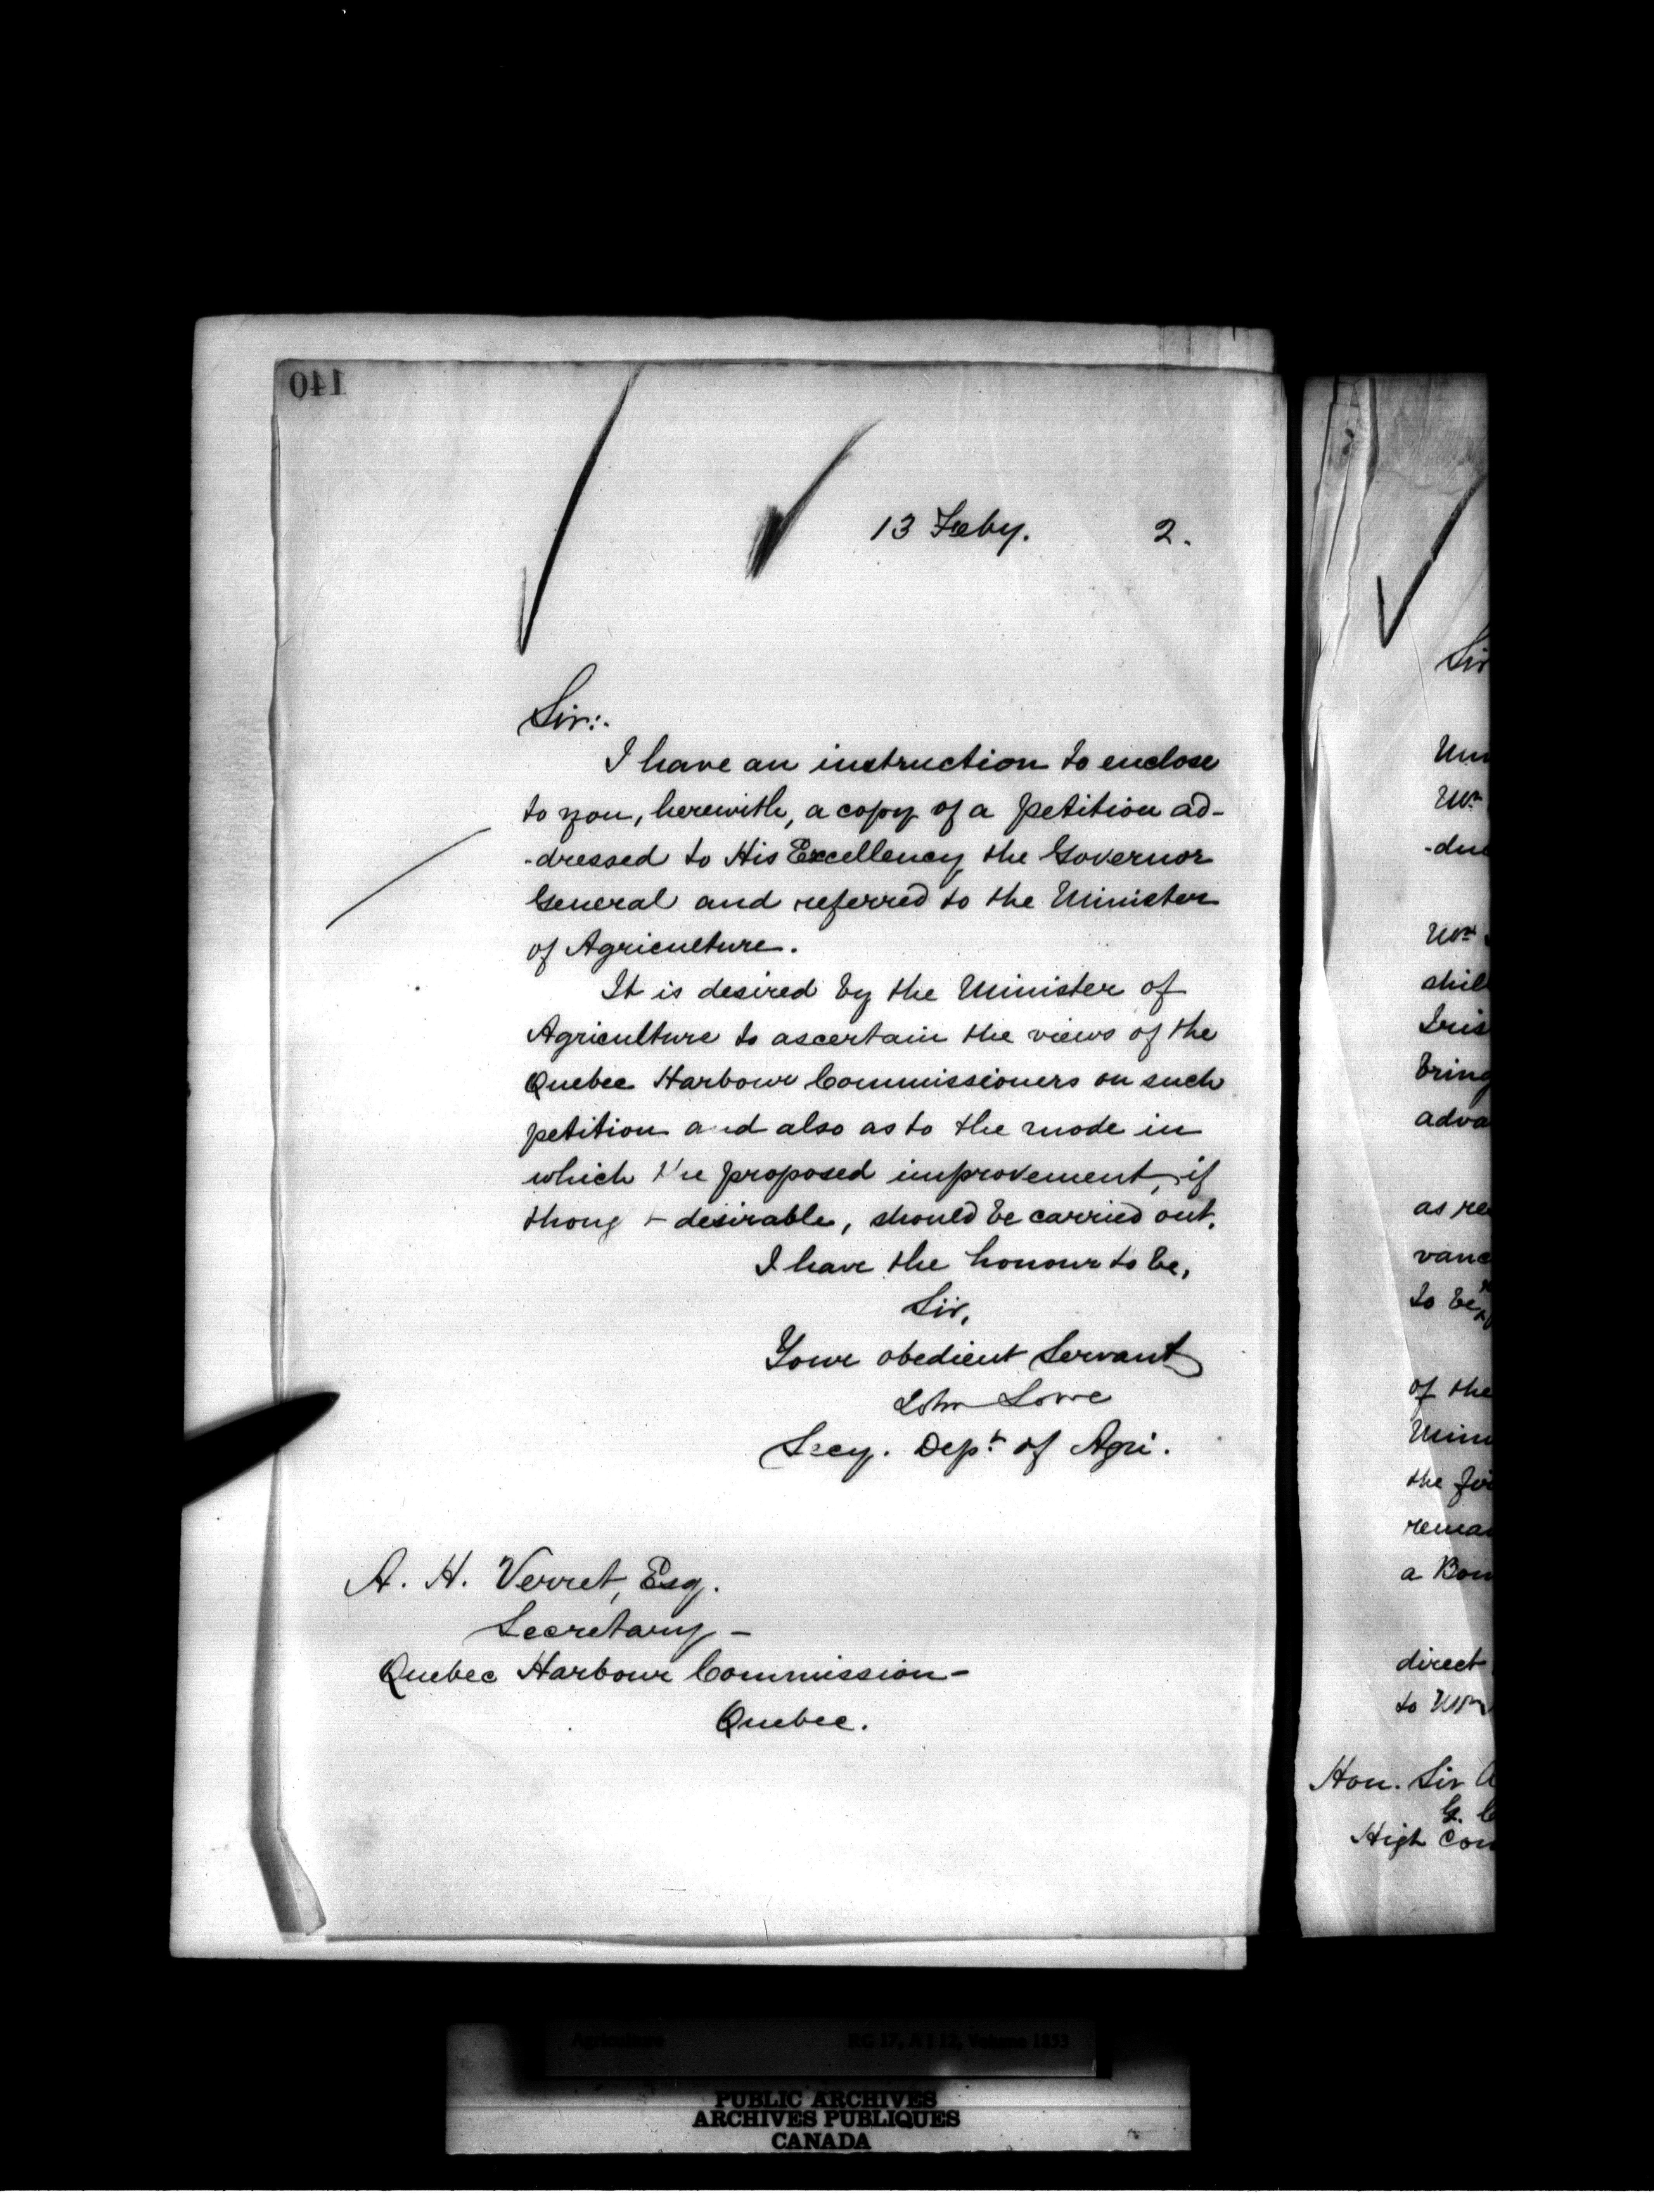 140
13 Feby. 2.
Sir:.
I have an instruction to enclose
to you, herewith, a copy of a petition ad-
-dressed to His Excellency the Governor
General and referred to the Minister
of Agriculture.
It is desired by the Minister of
Agriculture to ascertain the views of the
Quebec Harbour Commissioners on such
petition and also as to the mode in
which the proposed improvement, if
thought desirable, should be carried out.
I have the honour to be,
Sir,
Your obedient Servant
John Lowe
Secy. Dept. of Agri.
A. H. Verret, Esq.
Secretary -
Quebec Harbour Commission -
Quebec.
Sir
Wm
-due
Wm
shil
Iris
bring
adva
as re
vanc
to be
of the
Mini
the
remar
a Bon
direct
to Wm
Hon. Sir A
G. C
High Com
Agriculture RG 17, A I 12, Volume 1853
PUBLIC ARCHIVES
ARCHIVES PUBLIQUES
CANADA